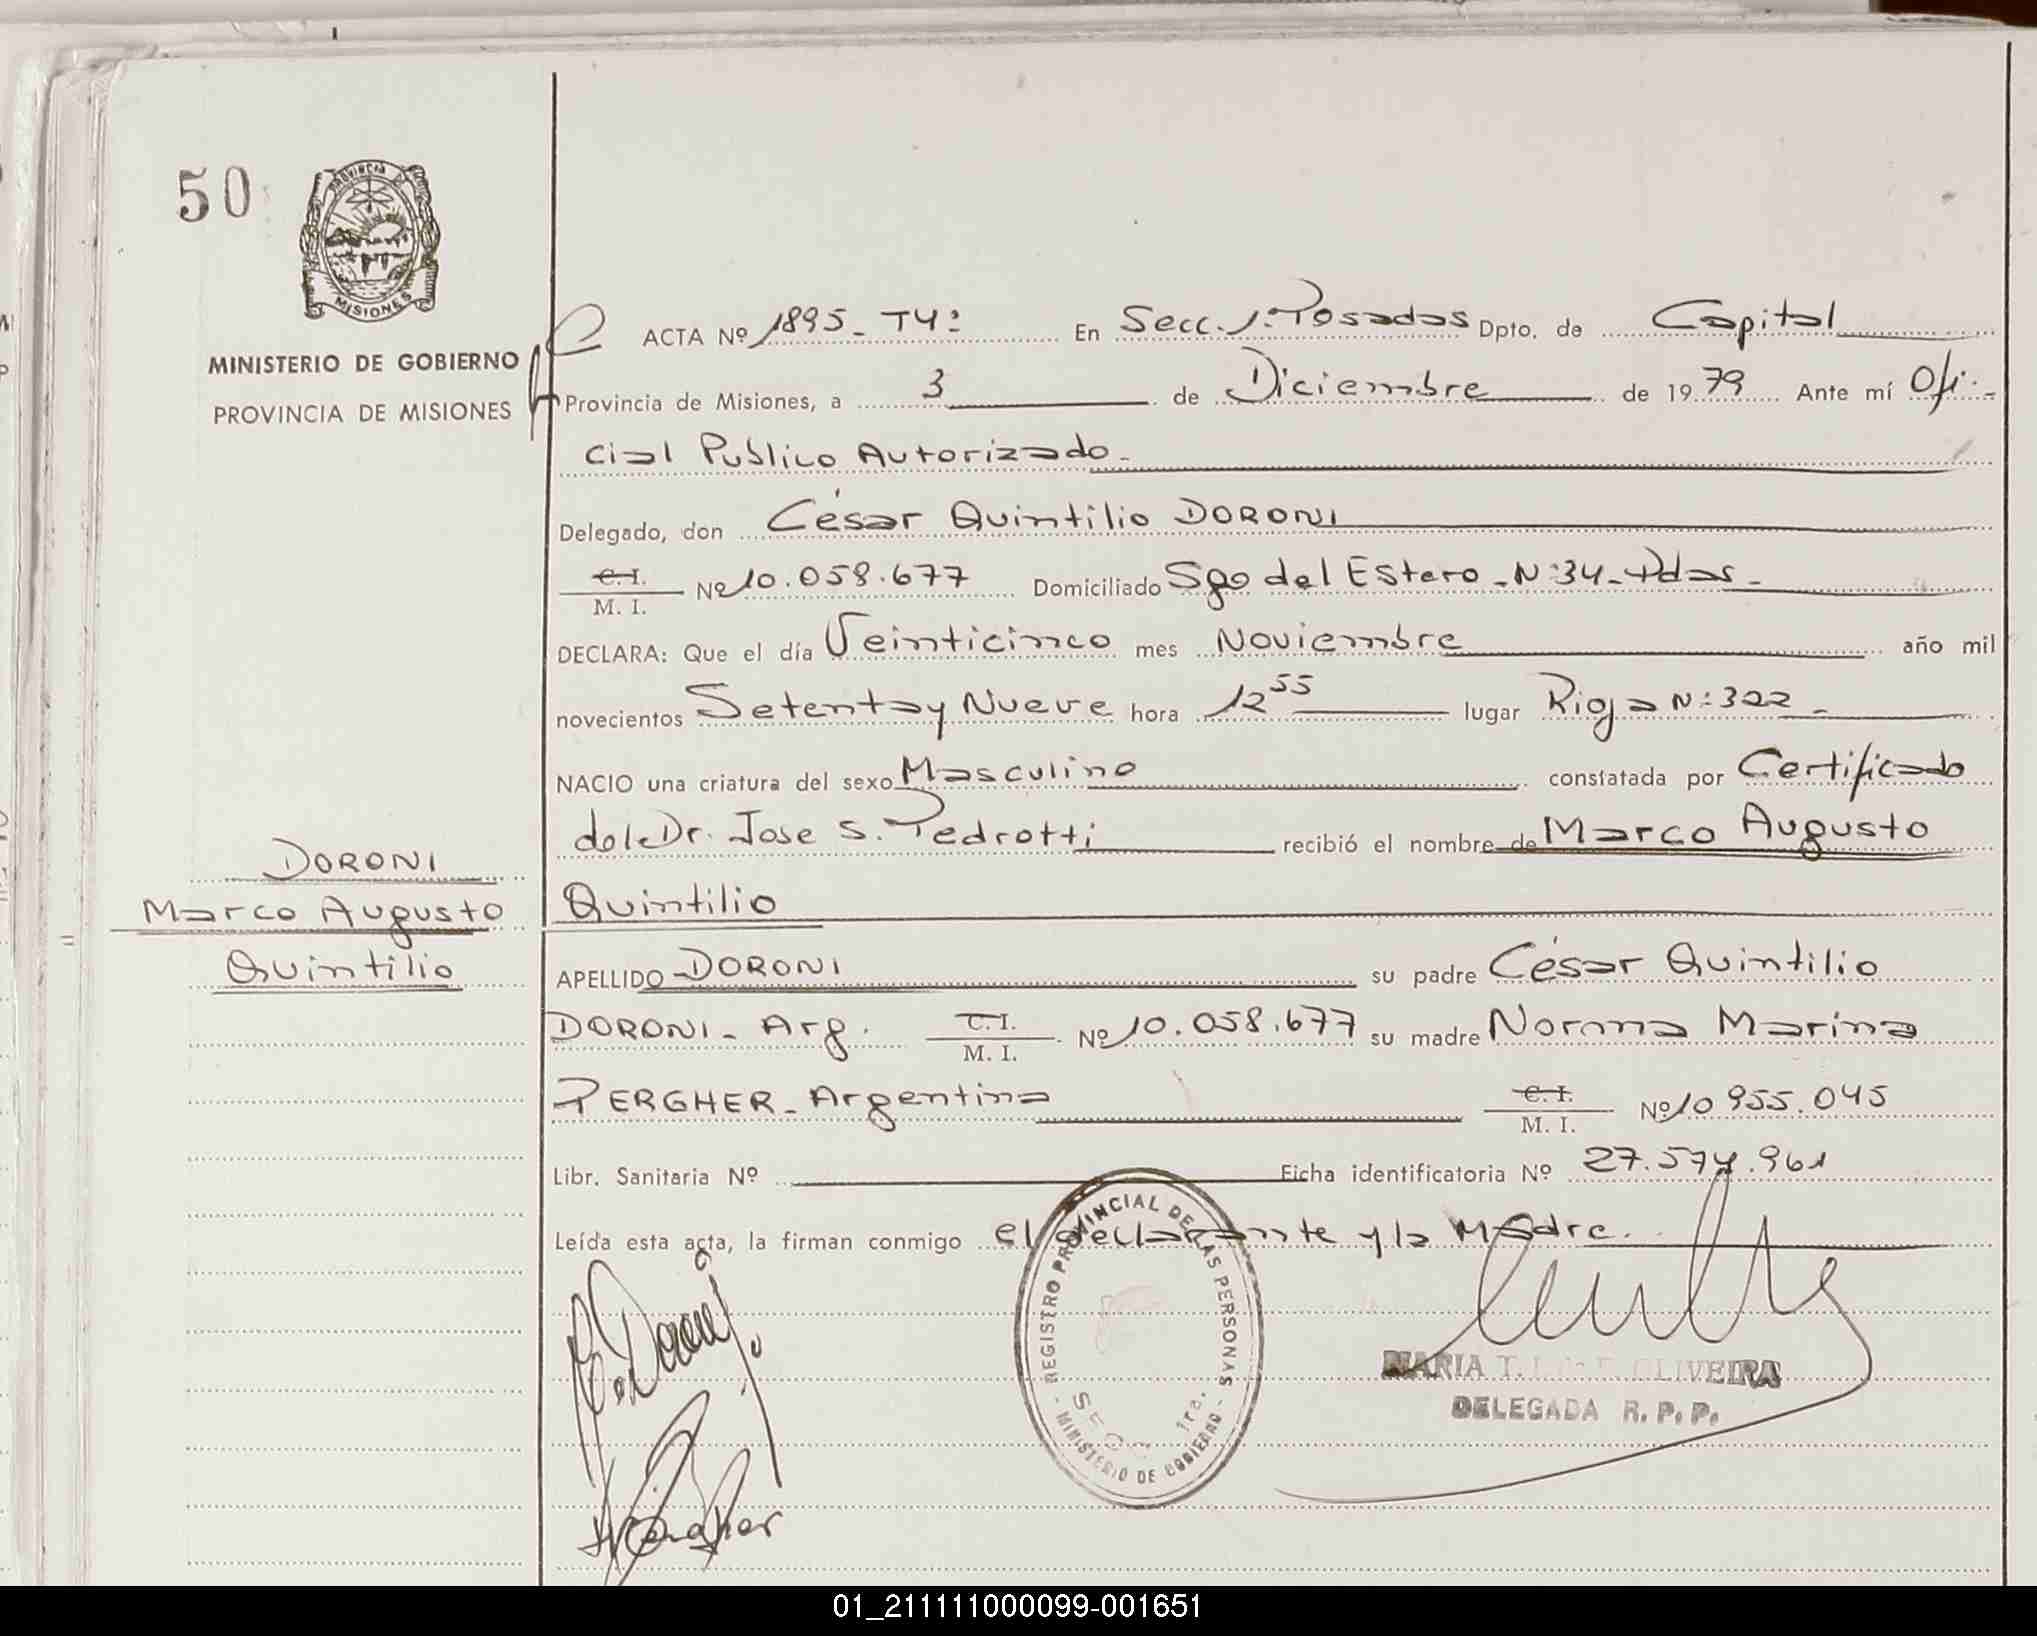 50
PROVINCIA DE
MISIONES
MINISTERIO DE GOBIERNO
PROVINCIA DE MISIONES
ACTA Nº 1895_T4º En Secc. 1º Posadas Dpto. de Capital
Provincia de Misiones, a 3 de Diciembre de 1979 Ante mí Ofi-
cial Publico Autorizado.
Delegado, don César Quintilio DORONI
C.I. M. I. Nº 10.058.677 Domiciliado Sgo del Estero_Nº34_Pdas_
DECLARA: Que el día Veinticinco mes Noviembre año mil
novecientos Setenta y Nueve hora 12 55 lugar Rioja Nº322_
NACIO una criatura del sexo Masculino constatada por Certificado
del Dr. Jose S. Pedrotti recibió el nombre de Marco Augusto
Quintilio
DORONI
Marco Augusto
Quintilio
APELLIDO DORONI su padre César Quintilio
DORONI_ Arg. C.I. M. I. Nº 10.058.677 su madre Norma Marina
PERGHER_Argentina C.I. M. I. Nº 10.955.045
Libr. Sanitaria Nº Ficha identificatoria Nº 27.574.961
Leída esta acta, la firman conmigo el declarante y la Madre.
REGISTRO PROVINCIAL DE LAS PERSONAS
SECC 1ra.
- MINISTERIO DE GOBIERNO -
MARIA T. OLIVEIRA
DELEGADA R. P. P.
01_211111000099-001651